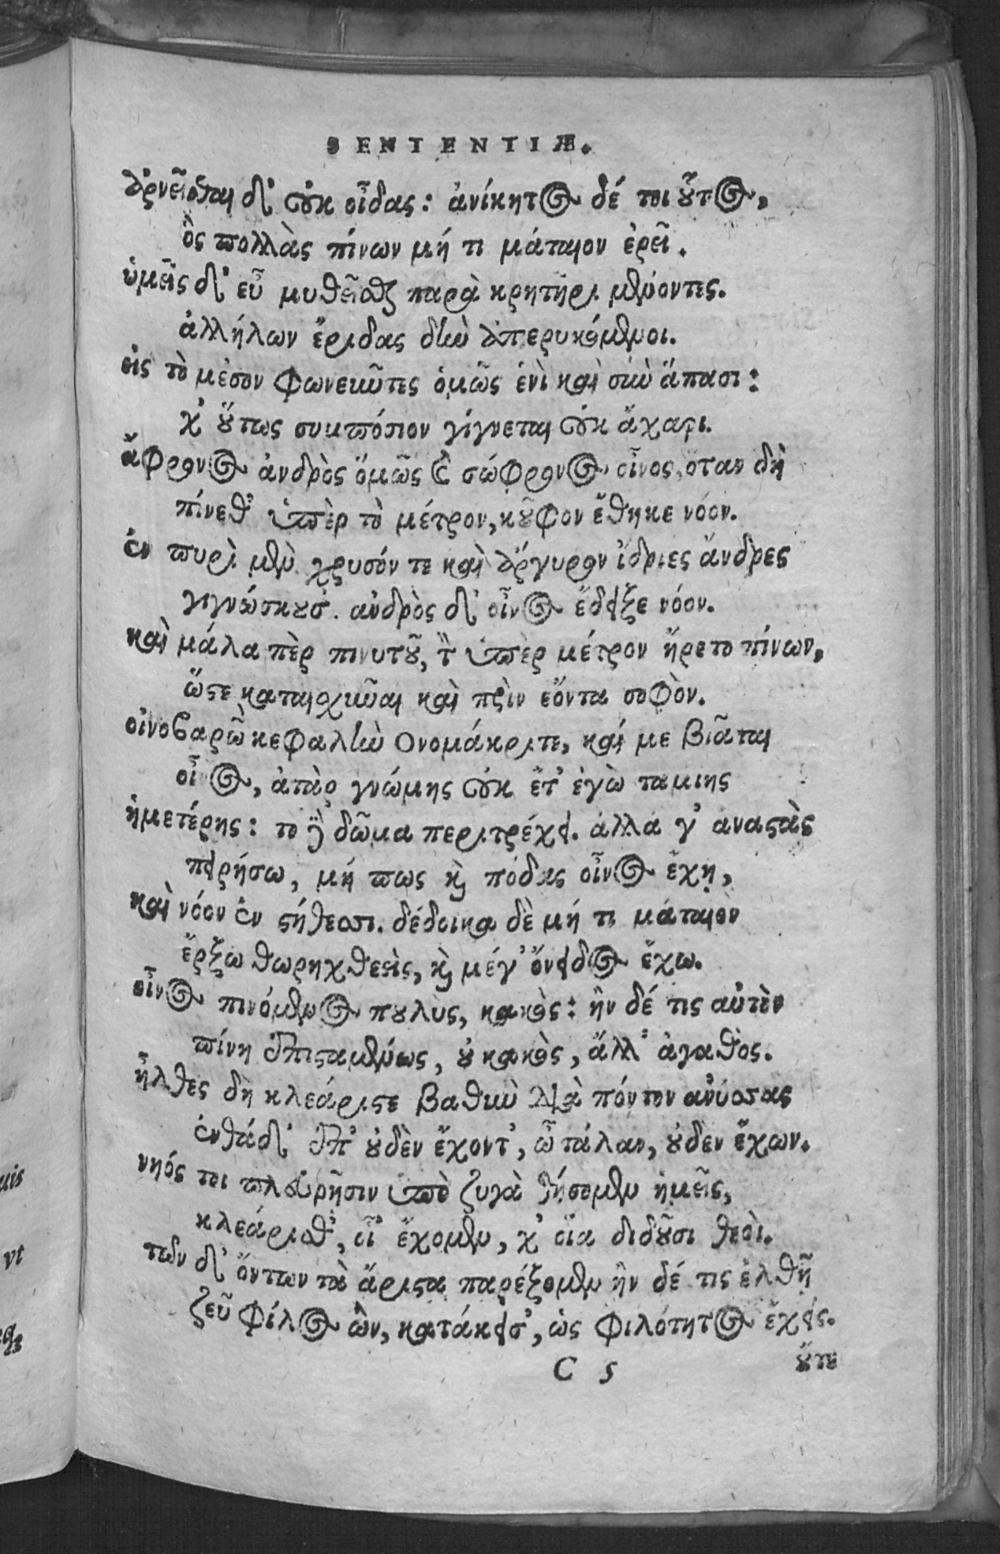 SENTENTIÆ.
ἀρνεῖσθαι δ' οὐκ οἶδας: ἀνίκητος δέ τοι οὗτος,
ὃς πολλὰς πίνων μή τι μάταιον ἐρεῖ.
ὑμεῖς δ' εὖ μυθεῖσθε παρὰ κρητῆρι μένοντες.
ἀλλήλων ἔριδας δὴν ἀπερυκόμενοι.
εἰς τὸ μέσον φωνεῦντες ὁμῶς ἑνὶ καὶ σὺν ἅπασι:
χ' οὕτως συμπόσιον γίγνεται οὐκ ἄχαρι.
ἄφρονος ἀνδρὸς ὅμῶς καὶ σώφρονος οἶνος, ὅταν δὴ
πίνεθ' ὑπὲρ τὸ μέτρον, κοῦφον ἔθηκε νόον.
ἐν πυρὶ μὲν χρυσόν τε καὶ ἄργυρον ἴδριες ἄνδρες
γιγνώσκουσ'. ἀνδρὸς δ' οἶνος ἔδειξε νόον.
καὶ μάλα πὲρ πινυτοῦ, τ ὑπὲρ μέτρον ἤρετο πίνων,
ὥστε καταισχῦναι καὶ πρὶν ἐόντα σοφὸν.
οἰνοβαρῶ κεφαλὴν Ονομάκριτε, καί με βιᾶται
οἶνος, ἀτὰρ γνώμης οὐκ ἔτ' ἐγὼ ταμιης
ἡμετέρης: τὸ δὲ δῶμα περιτρέχει. ἀλλά γ' ἀναστὰς
πειρήσω, μή πως καὶ πόδας οἶνος ἔχῃ,
καὶ νόον ἐν στήθεσσι. δέδοικα δὲ μή τι μάταιον
ἔρξω θωρηχθεὶς, καὶ μέγ' ὄνειδος ἔχω.
οἶνος πινόμενος πουλὺς, κακὸς: ἢν δέ τις αὐτὸν
πίνῃ ἐπισταμένως, οὐ κακὸς, ἄλλ' ἀγαθὸς.
ἦλθες δὴ κλεάριστε βαθὺν διὰ πόντον ἀνύσσας
ἐνθάδ' ἐπ' οὐδὲν ἔχοντ', ὦ τάλαν, οὐδεν ἔχων.
νηός τοι πλευρῇσιν ὑπὸ ζυγὰ θήσομεν ἡμεῖς,
κλεάρισθ', οἷ' ἔχομεν, χ' οἷα διδοῦσι θεοὶ.
τῶν δ' ὄντων τὰ ἄριστα παρέξομεν ἢν δέ τις ἐλθῇ
ζεῦ φίλος ὢν, κατάκεισ', ὡς φιλότητος ἔχεις.
C 5
οὔτε